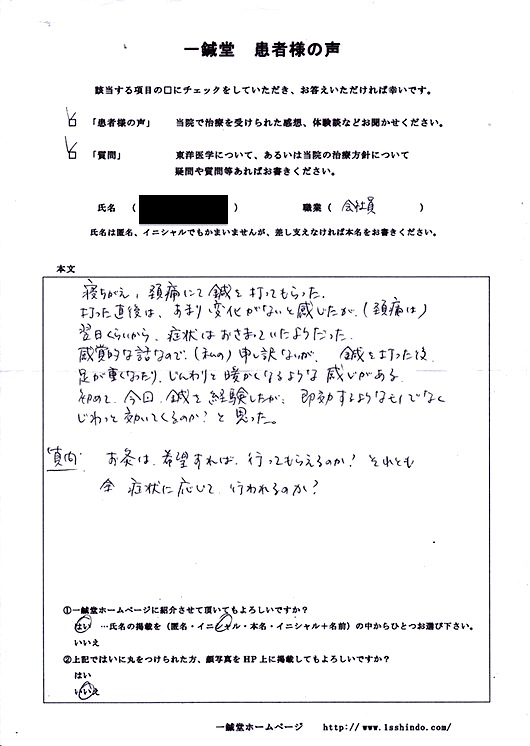 一鍼堂 患者様の声
該当する項目の□にチェックをしていただき、お答えいただければ幸いです。
「患者様の声」 当院で治療を受けられた感想、体験談などお聞かせください。
「質問」 東洋医学について、あるいは当院の治療方針について
疑問や質問等あればお書きください。
氏名（ ） 職業（ 会社員 ）
氏名は匿名、イニシャルでもかまいませんが、差し支えなければ本名をお書きください。
本文
寝ちがえ、頚痛にて鍼を打ってもらった。
打った直後は、あまり変化がないと感じたが、（頚痛は）
翌日くらいから、症状はおさまっていたようだった。
感覚的な話なので、（私の）申し訳ないが、 鍼を打った後、
足が重くなったり、じんわりと暖かくなるような感じがある。
初めて、今回、鍼を経験したが、即効するようなモノでなく
じわっと効いてくるのか？と思った。
質問 お灸は、希望すれば、行ってもらえるのか？それとも
症状に応じて、行われるのか？
①一鍼堂ホームページに紹介させて頂いてもよろしいですか？
はい …氏名の掲載を（匿名・イニシャル・本名・イニシャル＋名前）の中からひとつお選び下さい。
いいえ
②上記ではいに丸をつけられた方、顔写真をHP上に掲載してもよろしいですか？
はい
いいえ
一鍼堂ホームページ http://www.1sshindo.com/